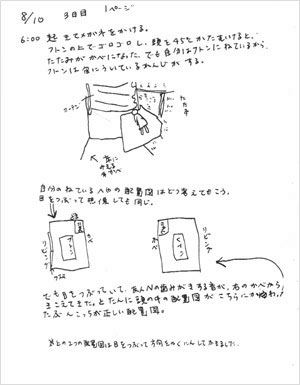 8/10 3日目 1ページ
6:00 起きてメガネをかける。
フトンの上でゴロゴロし、頭を45°かたむけると、
たたみがかべになった。でも自分はフトンにねているから
フトンは
カーテン
たたみ
床に
みえる
かべ
自分のねている への配置図はどう考えてもこう。
目をつぶって想像しても同じ。
リビング
フトン
かべ
リビング
フトン
かべ
でも目をつぶっていて、友人Nの歯みがきする音が、右のかべから
きこえてきた。とたんに頭の中の配置図が こちらにかわる!
たぶんこっちが正しい配置図。
上の2つの配置図は目をつぶって方向をかくにんしてきました。